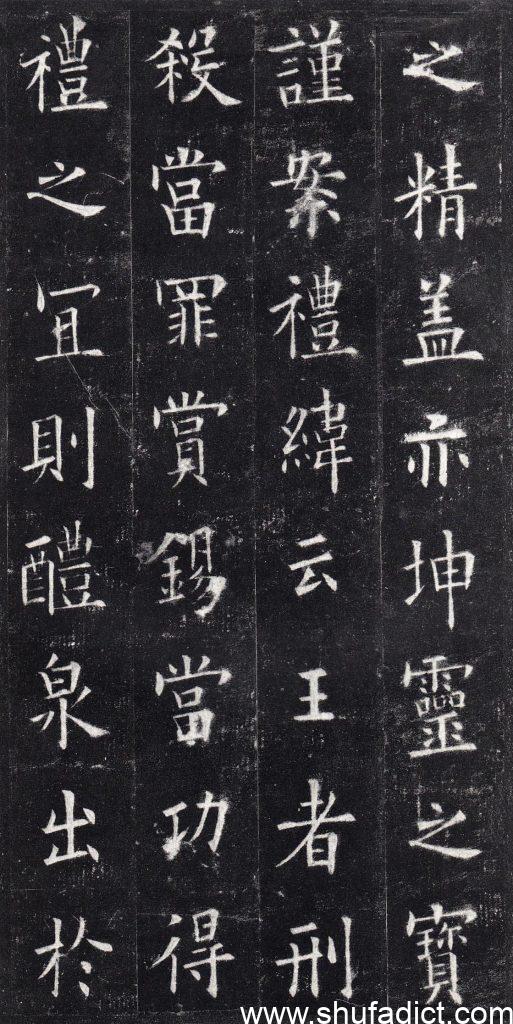 之精盖亦坤靈之寶
謹案禮緯云王者刑
殺當罪賞錫當功得
禮之冝則醴泉出於
www.shufadict.com